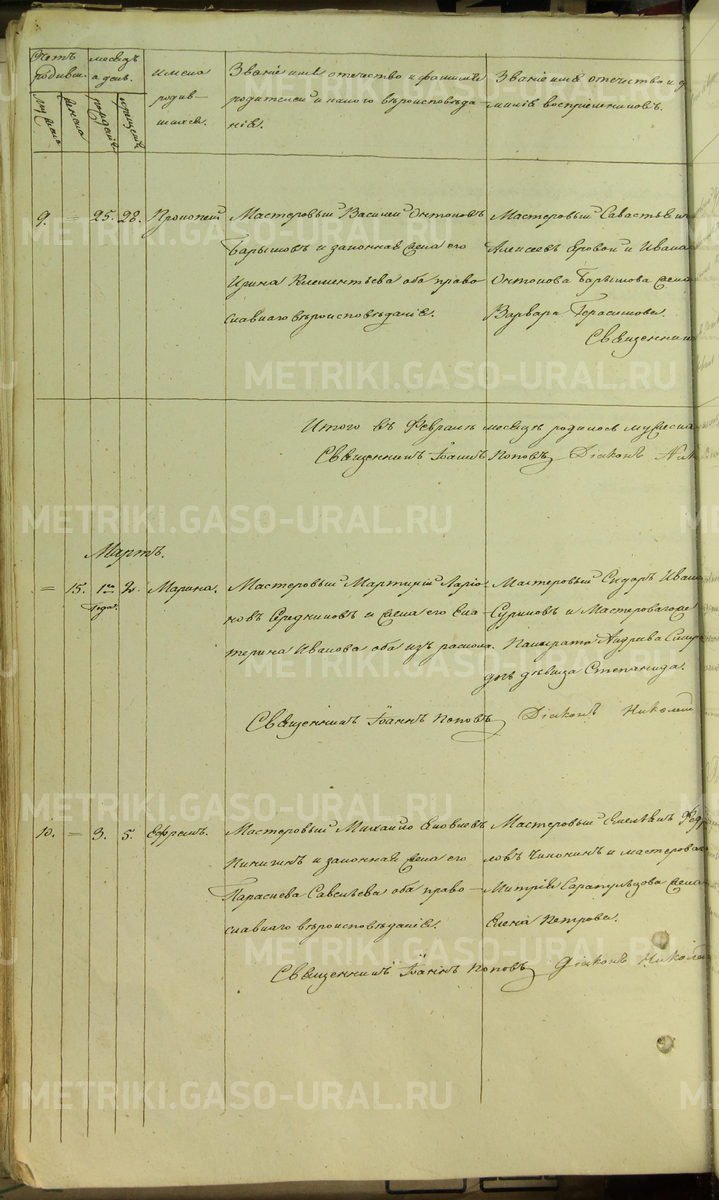 Счетъ родивш.
мужска
женска
месяцъ и день.
рожденіе
крещеніе
имена
родив-
шихся.
Званіе имя отечество и фамиліе
родителей и какого вѣроисповѣда
ніе.
Званіе имя отечество и ф
миліе воспріемниковъ.
9. = 25. 28. Прокопей
Мастеровый Василей Онтоновъ
Барышовъ и законная жена его
Ирина Клементьева оба право
славнаго вѣроисповѣданіе.
Мастеровый Савастьян
Алексеевъ Яровой и Ивана
Онтонова Барышова жена
Варвара Герасимова.
Священник
Итого въ Февралѣ месяцѣ родилось мужска
Священникъ Іоаннъ Поповъ Діаконъ Ник
Мартъ.
= 15. 1го 2. Марина.
года
Мастеровый Мартиній Ларіо-
новъ Середкинъ и жена его Ека-
терина Иванова оба изъ раскола.
Мастеровый Сидоръ Ивано
Суриковъ и Мастероваго
Панкрата Андрева
дочь дѣвица Степанида.
Священникъ Іоаннъ Поповъ Діаконъ Николай
10. = 3. 5. Ефремъ.
Мастеровый Михайло Яковлевъ
Пинигинъ и законная жена его
Параскева Савельева оба право-
славнаго вѣроисповѣданіе.
Мастеровый Емельянъ
ловъ Чинокинъ и мастероваго
Митрія Сарапульцова жена
Елена Петрова.
Священникъ Іоаннъ Поповъ Діаконъ Никола
METRIKI.GASO-URAL.RU